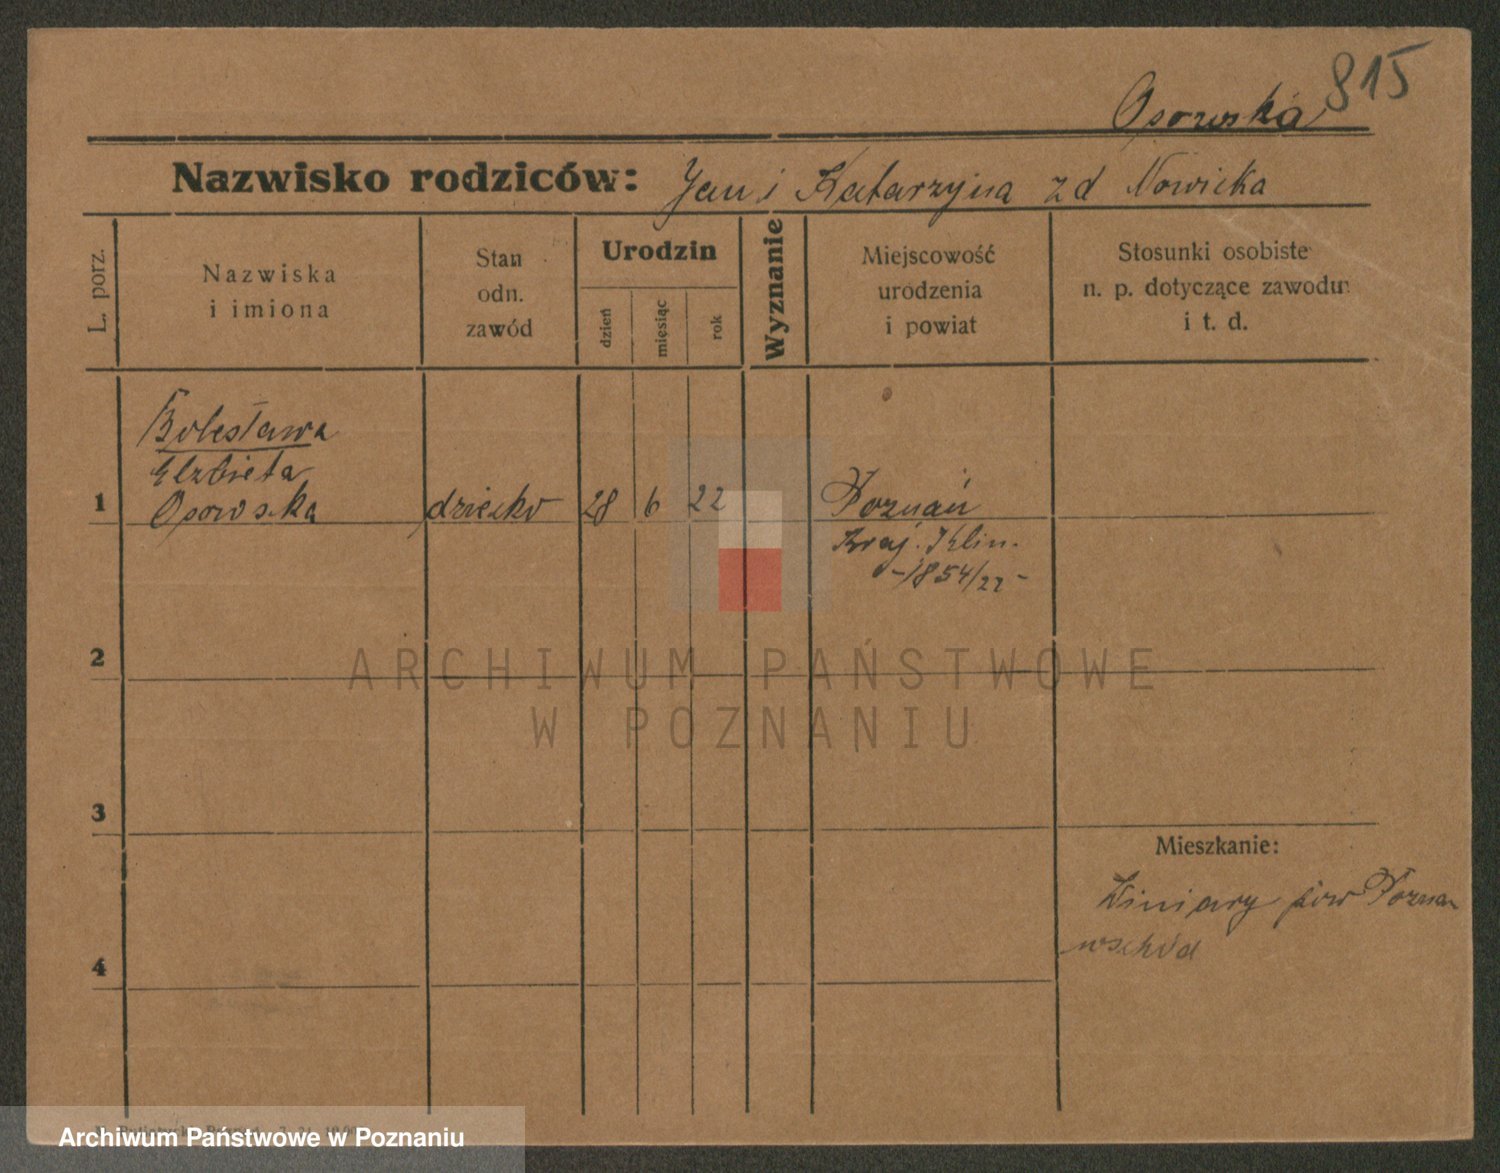 815
Osowska
Nazwisko rodziców: Jan i Katarzyna z d Nowicka
L. porz.
Nazwiska
i imiona
Stan
odn.
zawód
Urodzin
dzień
miesiąc
rok
Wyznanie
Miejscowość
urodzenia
i powiat
Stosunki osobiste
n. p. dotyczące zawodu
i t. d.
Bolesława
Elzbieta
1 Osowska dziecko 28 6 22 Poznań
Kraj. Klin.
-1854/22-
2
ARCHIWUM PAŃSTWOWE
W POZNANIU
3
Mieszkanie:
Winiary pow Poznan
wschód
4
Archiwum Państwowe w Poznaniu